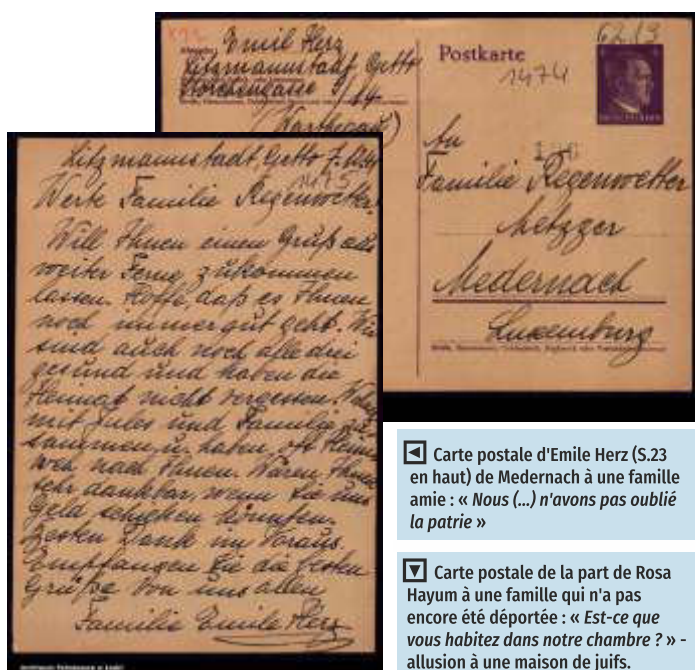 Emil Herz
Litzmannstadt Getto
Storchengasse 9/14
(Warthegau)
Postkarte
6219
1474
An
Familie Regenwetter
Metzger
Medernach
Luxemburg
Litzmannstadt Getto
1475
Werte Familie Regenwetter!
Will Ihnen einen Gruß aus
weiter Ferne zukommen
lassen. Hoffe, daß es Ihnen
noch immer gut geht. Wir
sind auch noch alle drei
gesund und haben die
Heimat nicht vergessen.
mit Jules und Familie zu-
sammen, u. haben oft Heim-
weh nach Ihnen. Wären Ihnen
sehr dankbar, wenn Sie uns
Geld schicken könnten.
Besten Dank im Voraus.
Empfangen Sie die besten
Grüße von uns allen
Familie Emile Herz
Carte postale d'Emile Herz (S.23
en haut) de Medernach à une famille
amie : « Nous (...) n'avons pas oublié
la patrie »
Carte postale de la part de Rosa
Hayum à une famille qui n'a pas
encore été déportée : « Est-ce que
vous habitez dans notre chambre ? » -
allusion à une maison de juifs.